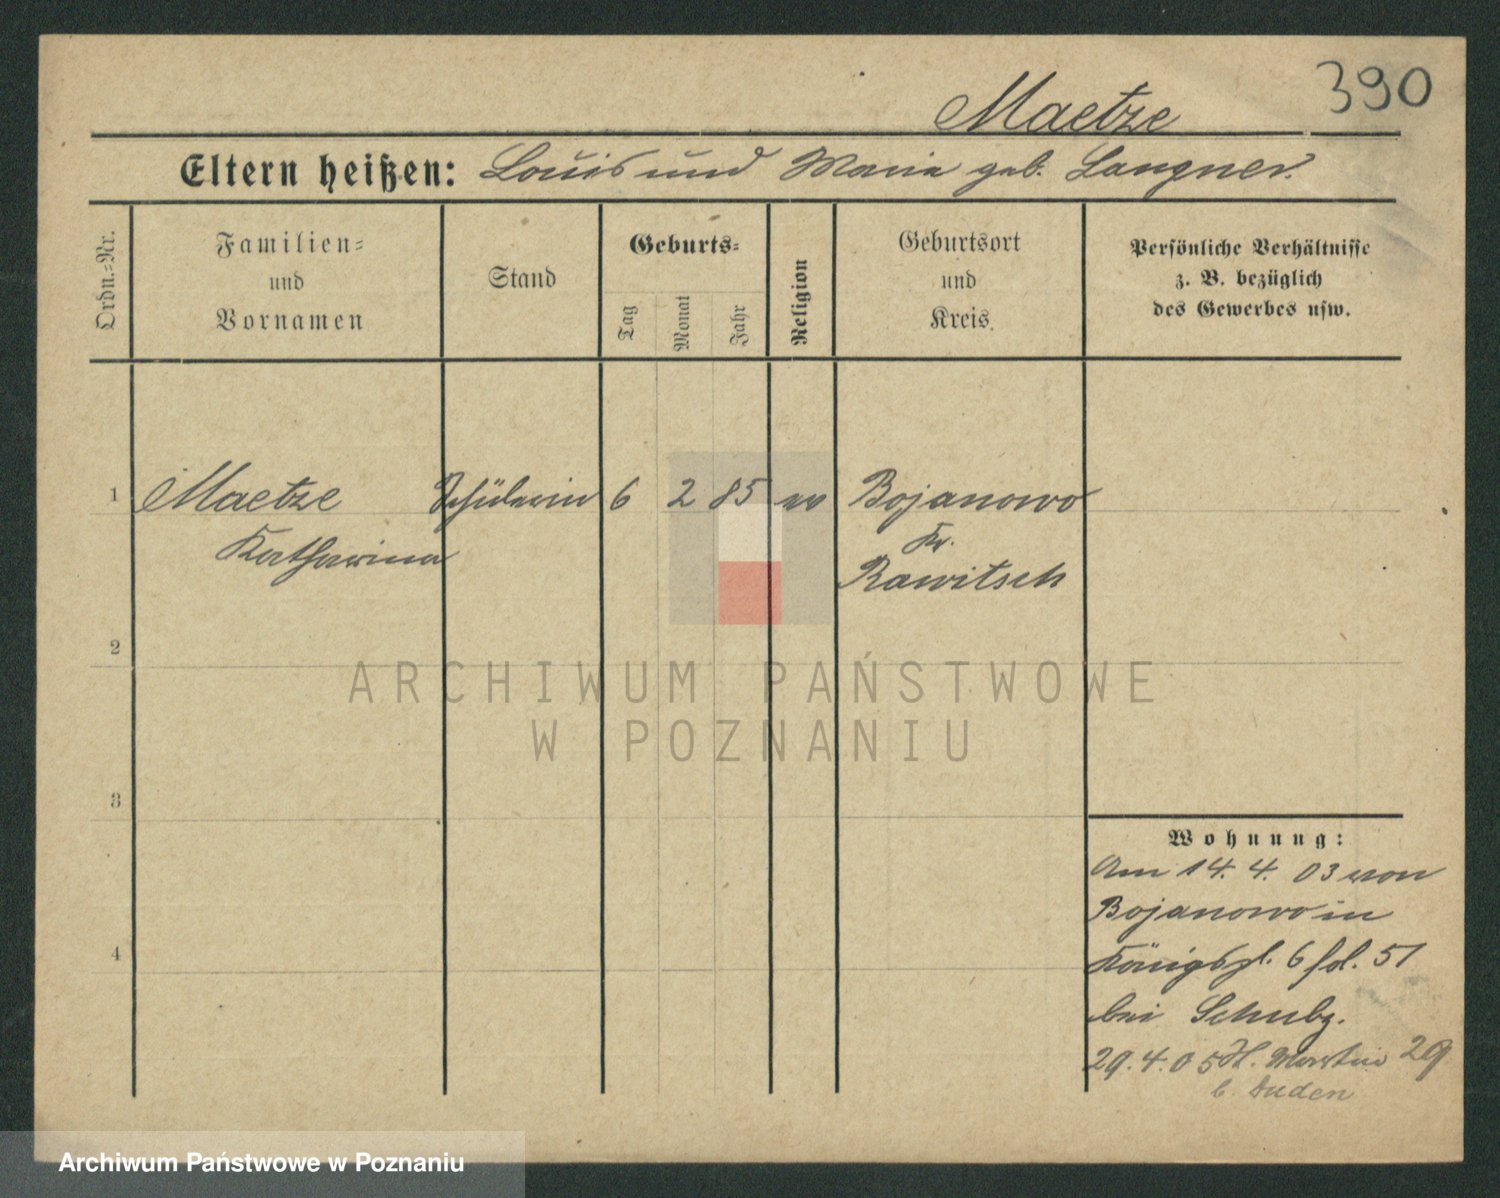 390
Maetze
Eltern heißen: Louis und Maria geb. Langner.
Ordn.=Nr.
Familien=
und
Vornamen
Stand
Geburts=
Tag
Monat
Jahr
Religion
Geburtsort
und
Kreis.
Persönliche Verhältnisse
z. B. bezüglich
des Gewerbes usw.
1 Maetze Schülerin 6 2 85 ev Bojanowo
Katharina
Kr.
Rawitsch
2
ARCHIWUM PAŃSTWOWE
W POZNANIU
3
4
Wohnung:
Am 14. 4. 03 von
Bojanowo in
Königspl. 6 fol. 51
bei Schubz.
29. 4. 05 St. Martin 29
b. Duden
Archiwum Państwowe w Poznaniu